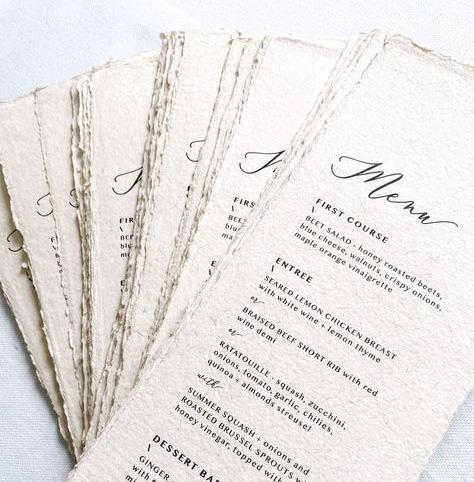 Menu
FIRST COURSE
\
BEET SALAD - honey roasted beets,
blue cheese, walnuts, crispy onions,
maple orange vinaigrette
ENTREE
\
SEARED LEMON CHICKEN BREAST
with white wine + lemon thyme
or
BRAISED BEEF SHORT RIB with red
wine demi
or
RATATOUILLE - squash, zucchini,
onions, tomato, garlic, chilies,
quinoa + almonds streusel
with
SUMMER SQUASH + onions and
ROASTED BRUSSEL SPROUTS w
honey vinegar, topped with
\
DESSERT BA
\
GINGER
with
FIRST
\
BEET
blue
maple
ENTR
\
SEARE
with